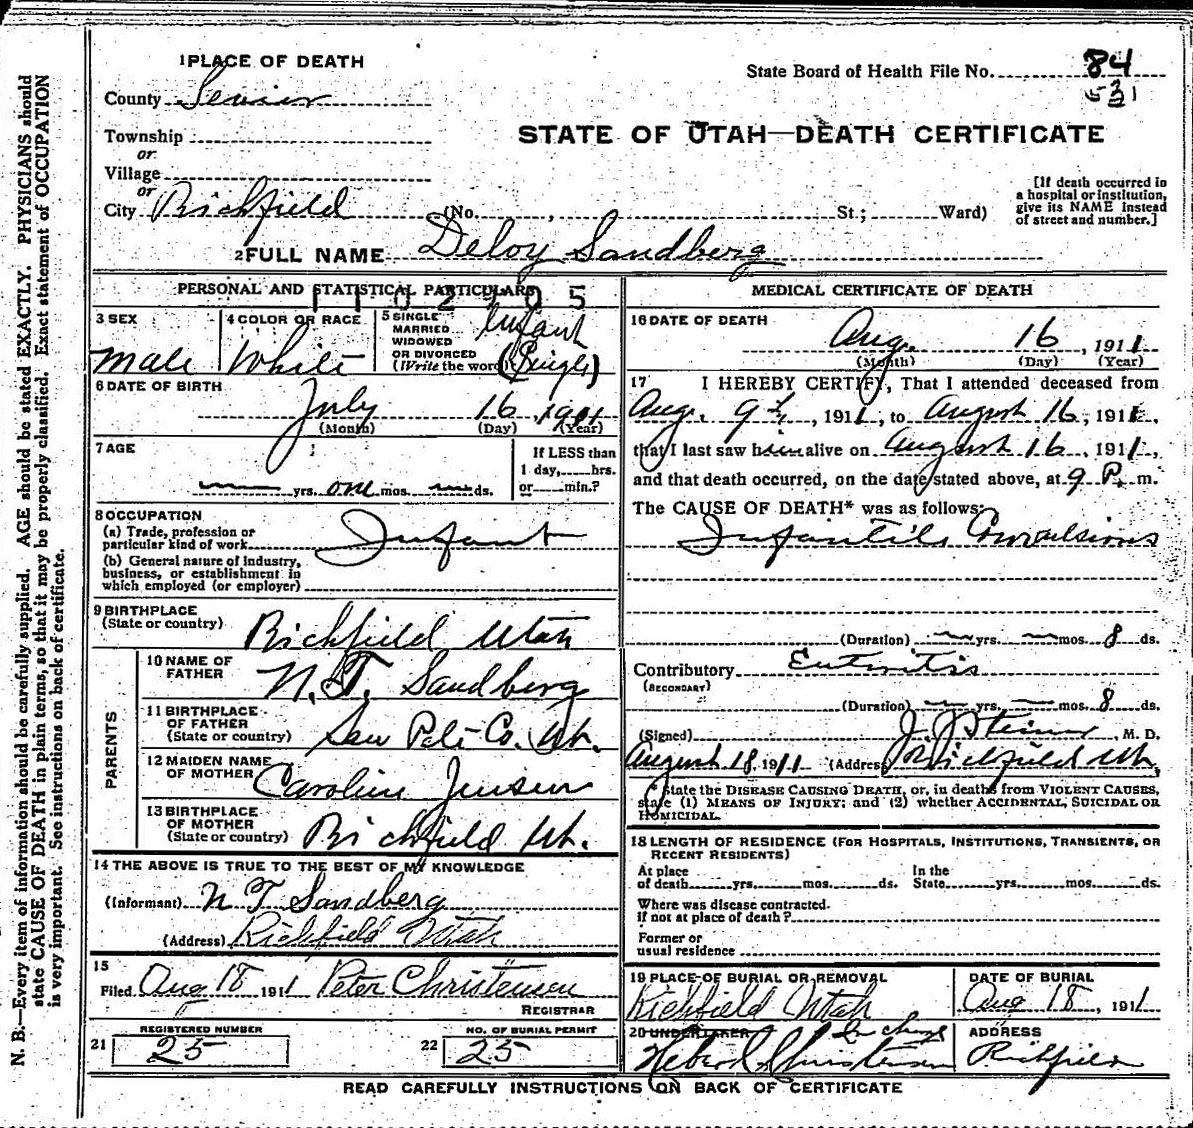 1 PLACE OF DEATH
County Sevier
Township
or
Village
or
City Richfield (No. , St.; Ward)
State Board of Health File No. 84
531
STATE OF UTAH—DEATH CERTIFICATE
[If death occurred in
a hospital or institution,
give its NAME instead
of street and number.]
2 FULL NAME Deloy Sandberg
PERSONAL AND STATISTICAL PARTICULARS
1102905
3 SEX
male
4 COLOR OR RACE
White
5 SINGLE
MARRIED
WIDOWED
OR DIVORCED
(Write the word)
Infant
(Single)
6 DATE OF BIRTH
July 16 1911
(Month) (Day) (Year)
7 AGE
— yrs. one mos. — ds.
If LESS than
1 day, hrs.
or min.?
8 OCCUPATION
(a) Trade, profession or
particular kind of work Infant
(b) General nature of industry,
business, or establishment in
which employed (or employer)
9 BIRTHPLACE
(State or country) Richfield Utah
PARENTS
10 NAME OF
FATHER N. T. Sandberg
11 BIRTHPLACE
OF FATHER
(State or country) San Pete Co. Ut.
12 MAIDEN NAME
OF MOTHER Caroline Jensen
13 BIRTHPLACE
OF MOTHER
(State or country) Richfield Ut.
14 THE ABOVE IS TRUE TO THE BEST OF MY KNOWLEDGE
(Informant) N T Sandberg
(Address) Richfield Utah
15
Filed Aug 18 1911 Peter Christensen
REGISTRAR
21 REGISTERED NUMBER
25
22 NO. OF BURIAL PERMIT
25
MEDICAL CERTIFICATE OF DEATH
16 DATE OF DEATH
Aug. 16, 1911
(Month) (Day) (Year)
17 I HEREBY CERTIFY, That I attended deceased from
Aug. 9th, 1911, to August 16, 1911,
that I last saw him alive on August 16, 1911,
and that death occurred, on the date stated above, at 9 P. m.
The CAUSE OF DEATH* was as follows:
Infantile Convulsions
(Duration) — yrs. — mos. 8 ds.
Contributory Enteritis
(SECONDARY)
(Duration) — yrs. — mos. 8 ds.
(Signed) J. J. Steiner, M. D.
August 18 1911 (Address) Richfield Ut.
* State the DISEASE CAUSING DEATH, or, in deaths from VIOLENT CAUSES,
state (1) MEANS OF INJURY; and (2) whether ACCIDENTAL, SUICIDAL OR
HOMICIDAL.
18 LENGTH OF RESIDENCE (FOR HOSPITALS, INSTITUTIONS, TRANSIENTS, OR
RECENT RESIDENTS)
At place
of death yrs. mos. ds.
In the
State yrs. mos. ds.
Where was disease contracted
if not at place of death?
Former or
usual residence
19 PLACE OF BURIAL OR REMOVAL
Richfield Utah
DATE OF BURIAL
Aug 18, 1911
20 UNDERTAKER In charge
Heber Christensen
ADDRESS
Richfield
READ CAREFULLY INSTRUCTIONS ON BACK OF CERTIFICATE
N. B.—Every item of information should be carefully supplied. AGE should be stated EXACTLY. PHYSICIANS should
state CAUSE OF DEATH in plain terms, so that it may be properly classified. Exact statement of OCCUPATION
is very important. See instructions on back of certificate.